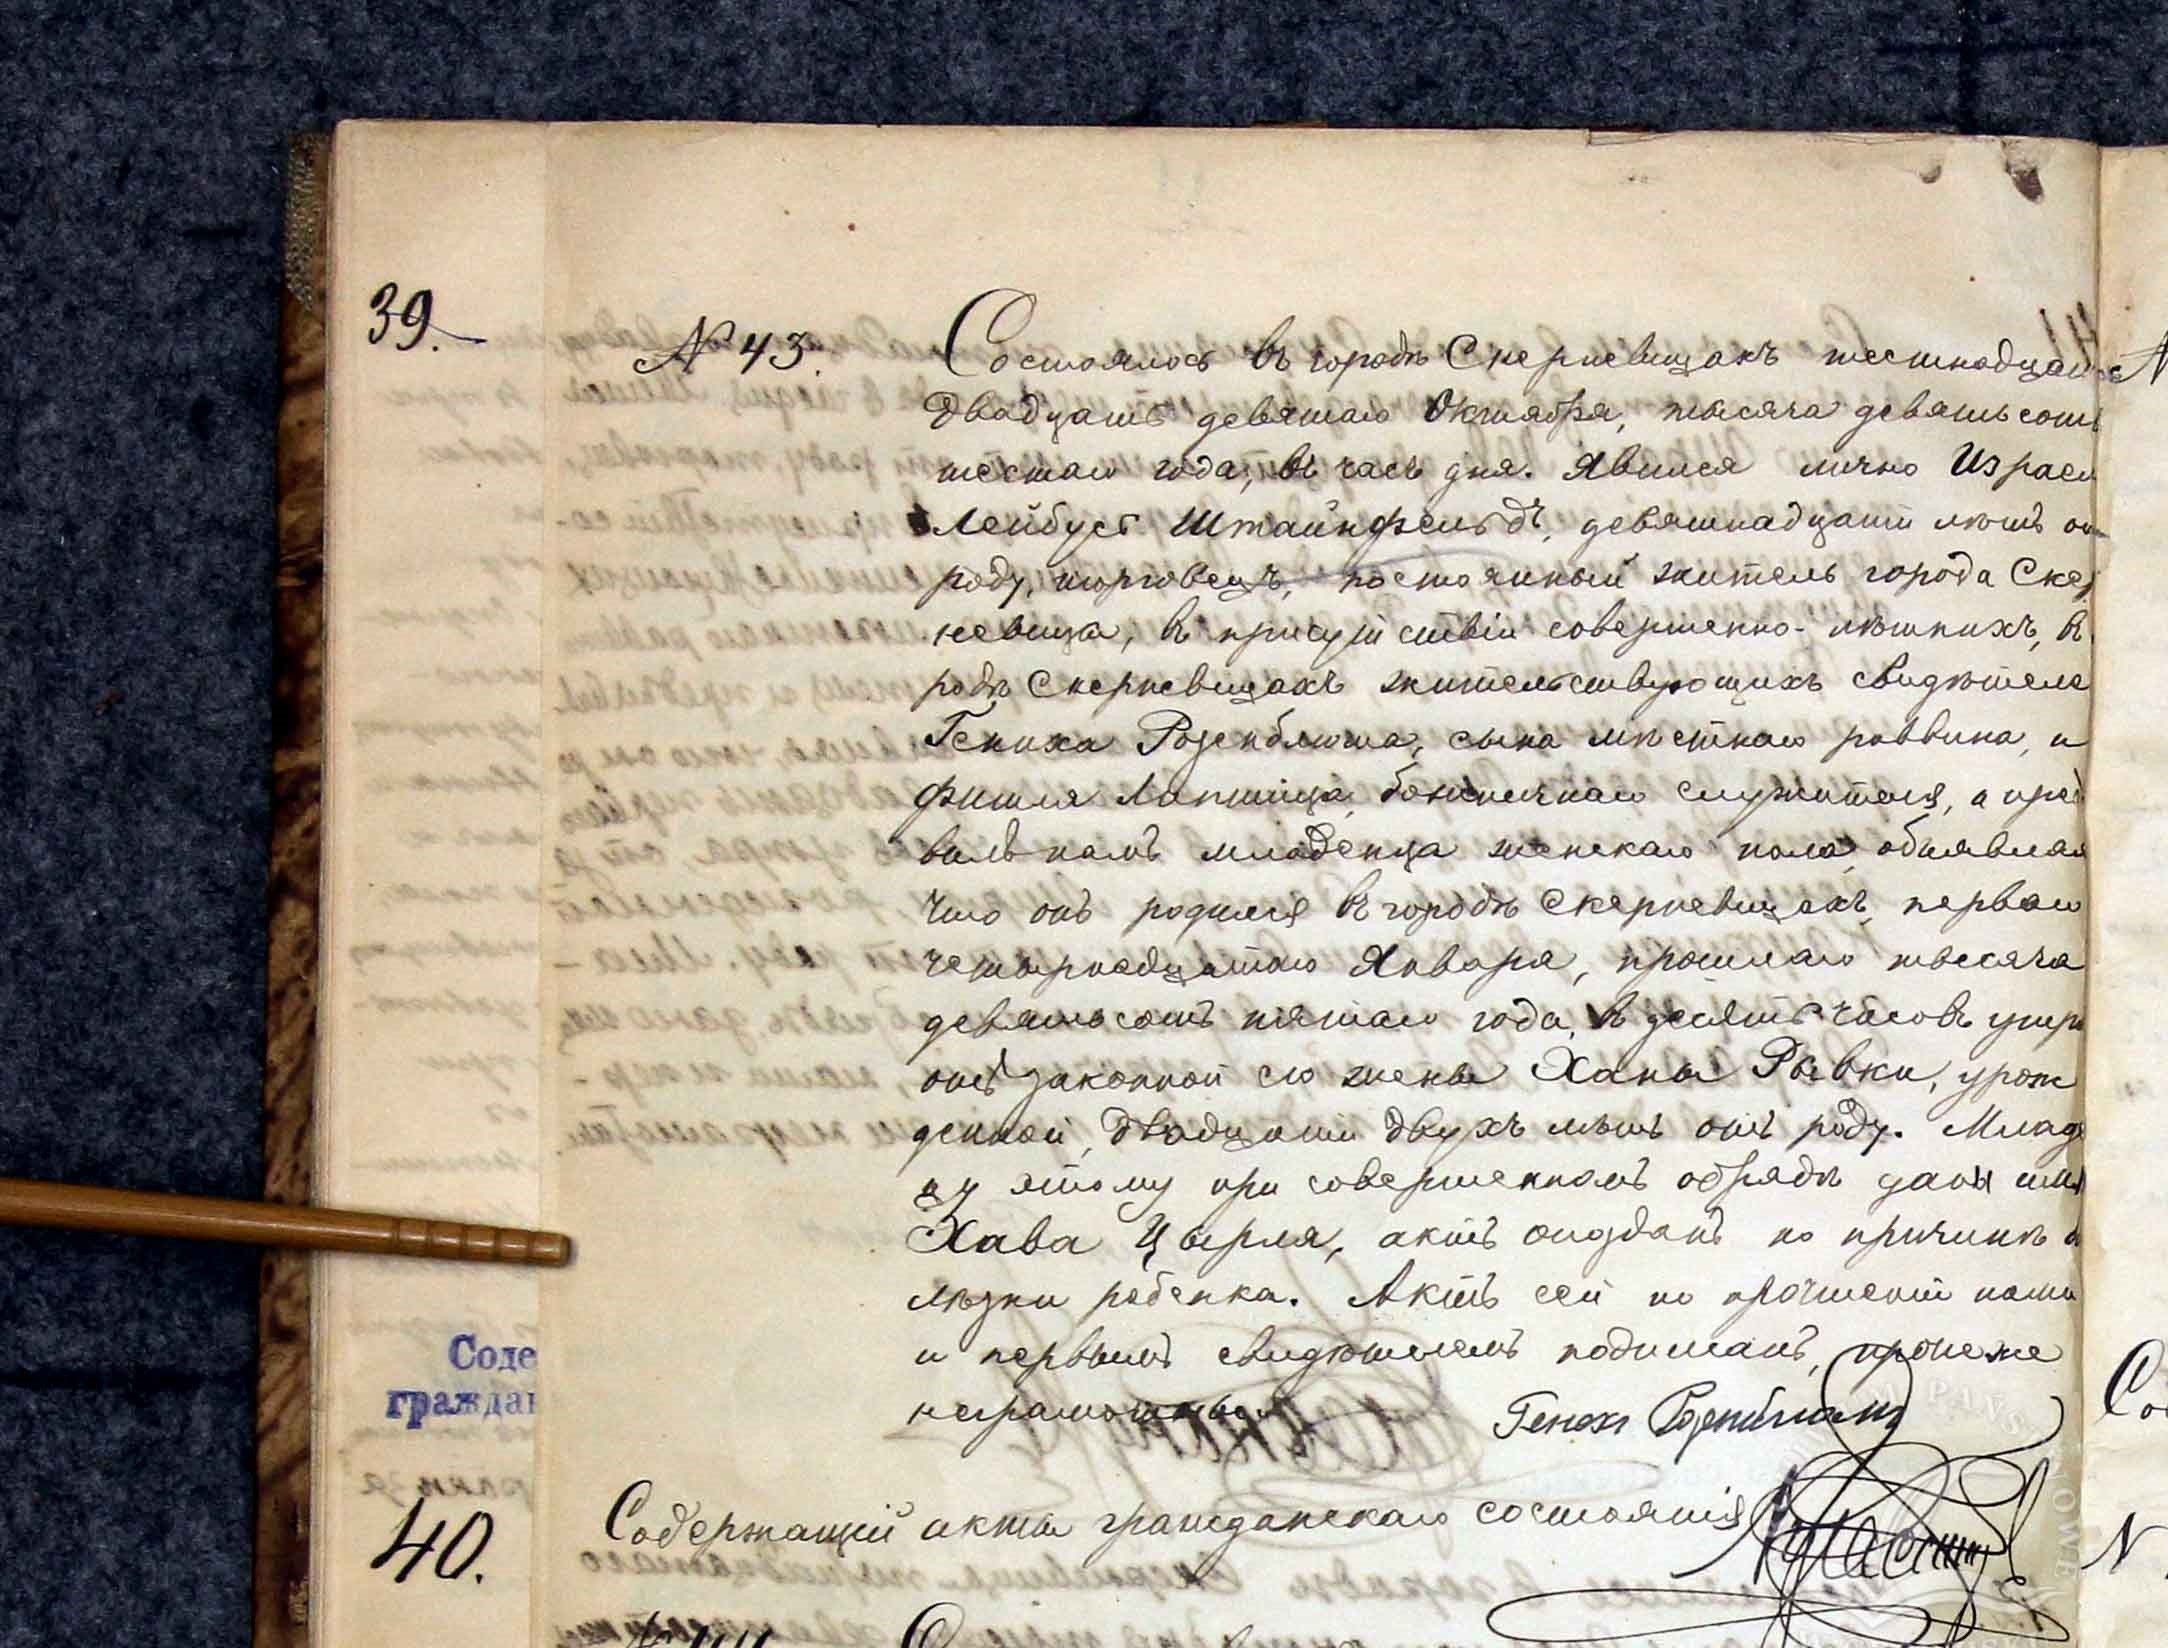 39.
№ 43.
Состоялось въ городѣ Скерневицахъ шестнадцат
двадцать девятаго Октября, тысяча девятьсотъ
шестаго года, въ часъ дня. Явился лично Израел
Лейбусъ Штайнфельдъ, девятнадцати лѣтъ от
роду, торговецъ, постоянный житель города Скер
невица, въ присутствіи совершенно-лѣтнихъ, в
родѣ Скерневицахъ жительствующихъ свидѣтеле
Геноха Розенблюма, сына мѣстнаго раввина, и
Фишля Липшица, божничнаго служителя, а пред
вилъ намъ младенца женскаго пола, объявляя
что онъ родился въ городѣ Скерневицахъ, перваго
четырнадцатаго Января, прошлаго тысяча
девятьсотъ пятаго года, въ десять часовъ утра
отъ законной его жены Ханы Рывки, урож
денной, двадцати двухъ лѣтъ отъ роду. Младе
нцу этому при совершенномъ обрядѣ даны имя
Хава Цырля, актъ опозданъ по причинѣ б
лѣзни ребенка. Актъ сей по прочтеніи нами
и первымъ свидѣтелемъ подписанъ, прочіеже
неграмотные.
Генохъ Розенблюмъ
Соде
граждан
Содержащій акты гражданскаго состоянія
40.